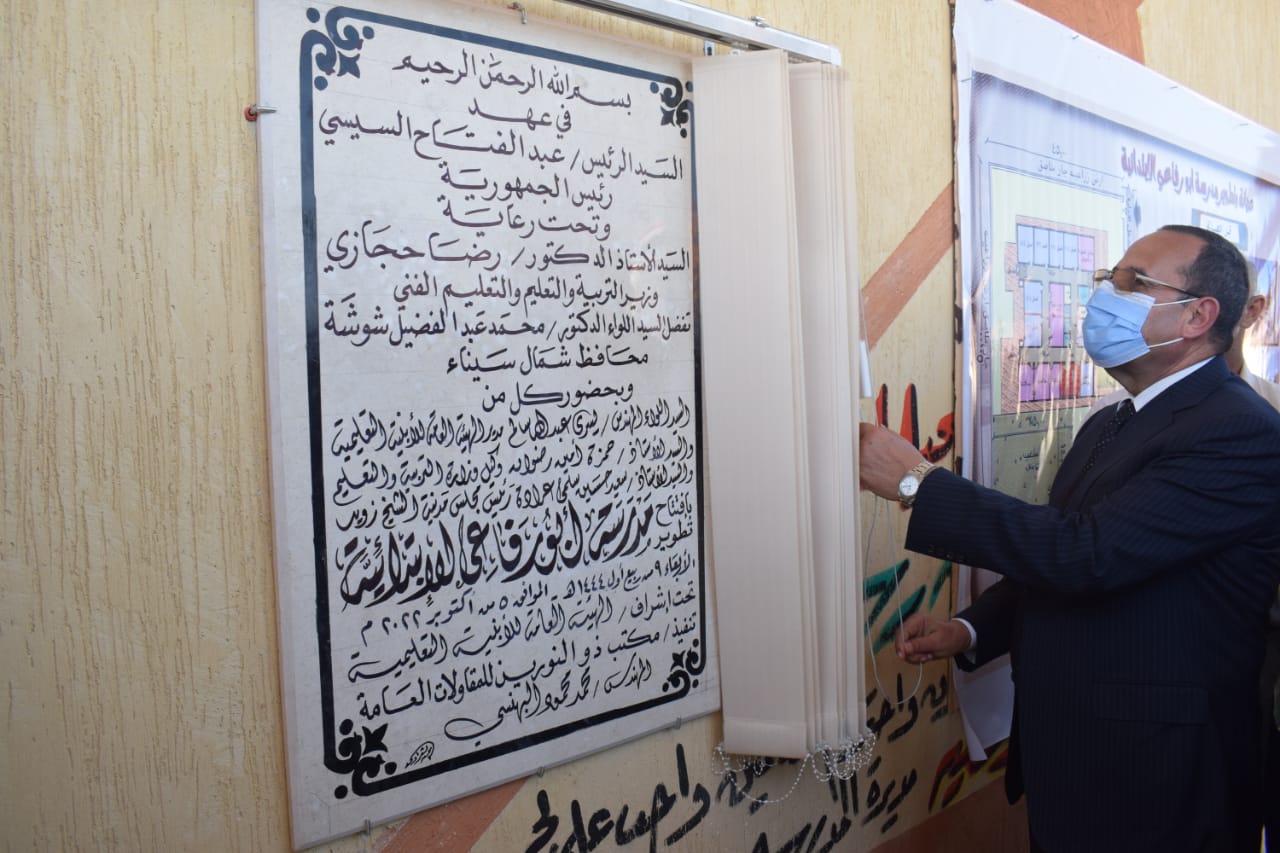 بسم الله الرحمن الرحيم
في عهد
السيد الرئيس / عبد الفتاح السيسي
رئيس الجمهورية
وتحت رعاية
السيد الأستاذ الدكتور / رضا حجازي
وزير التربية والتعليم والتعليم الفني
تفضل السيد اللواء الدكتور / محمد عبد الفضيل شوشة
محافظ شمال سيناء
وبحضور كل من
السيد اللواء المهندس / يسري عبد الله سالم مدير الهيئة العامة للأبنية التعليمية
والسيد الأستاذ / حمزة أمين رضوان وكيل وزارة التربية والتعليم
والسيد الأستاذ / سعيد حسين سلمي عرادة رئيس مجلس مدينة الشيخ زويد
بافتتاح
تطوير
مدرسة أبو رفاعي الابتدائية
الأربعاء ٩ من ربيع أول ١٤٤٤ هـ الموافق ٥ من أكتوبر ٢٠٢٢ م
تحت إشراف / الهيئة العامة للأبنية التعليمية
تنفيذ / مكتب ذو النورين للمقاولات العامة
المهندس / محمد محمود البهنسي
مدرسة ابو رفاعي الابتدائية
واجب على
مديرة المدرسة